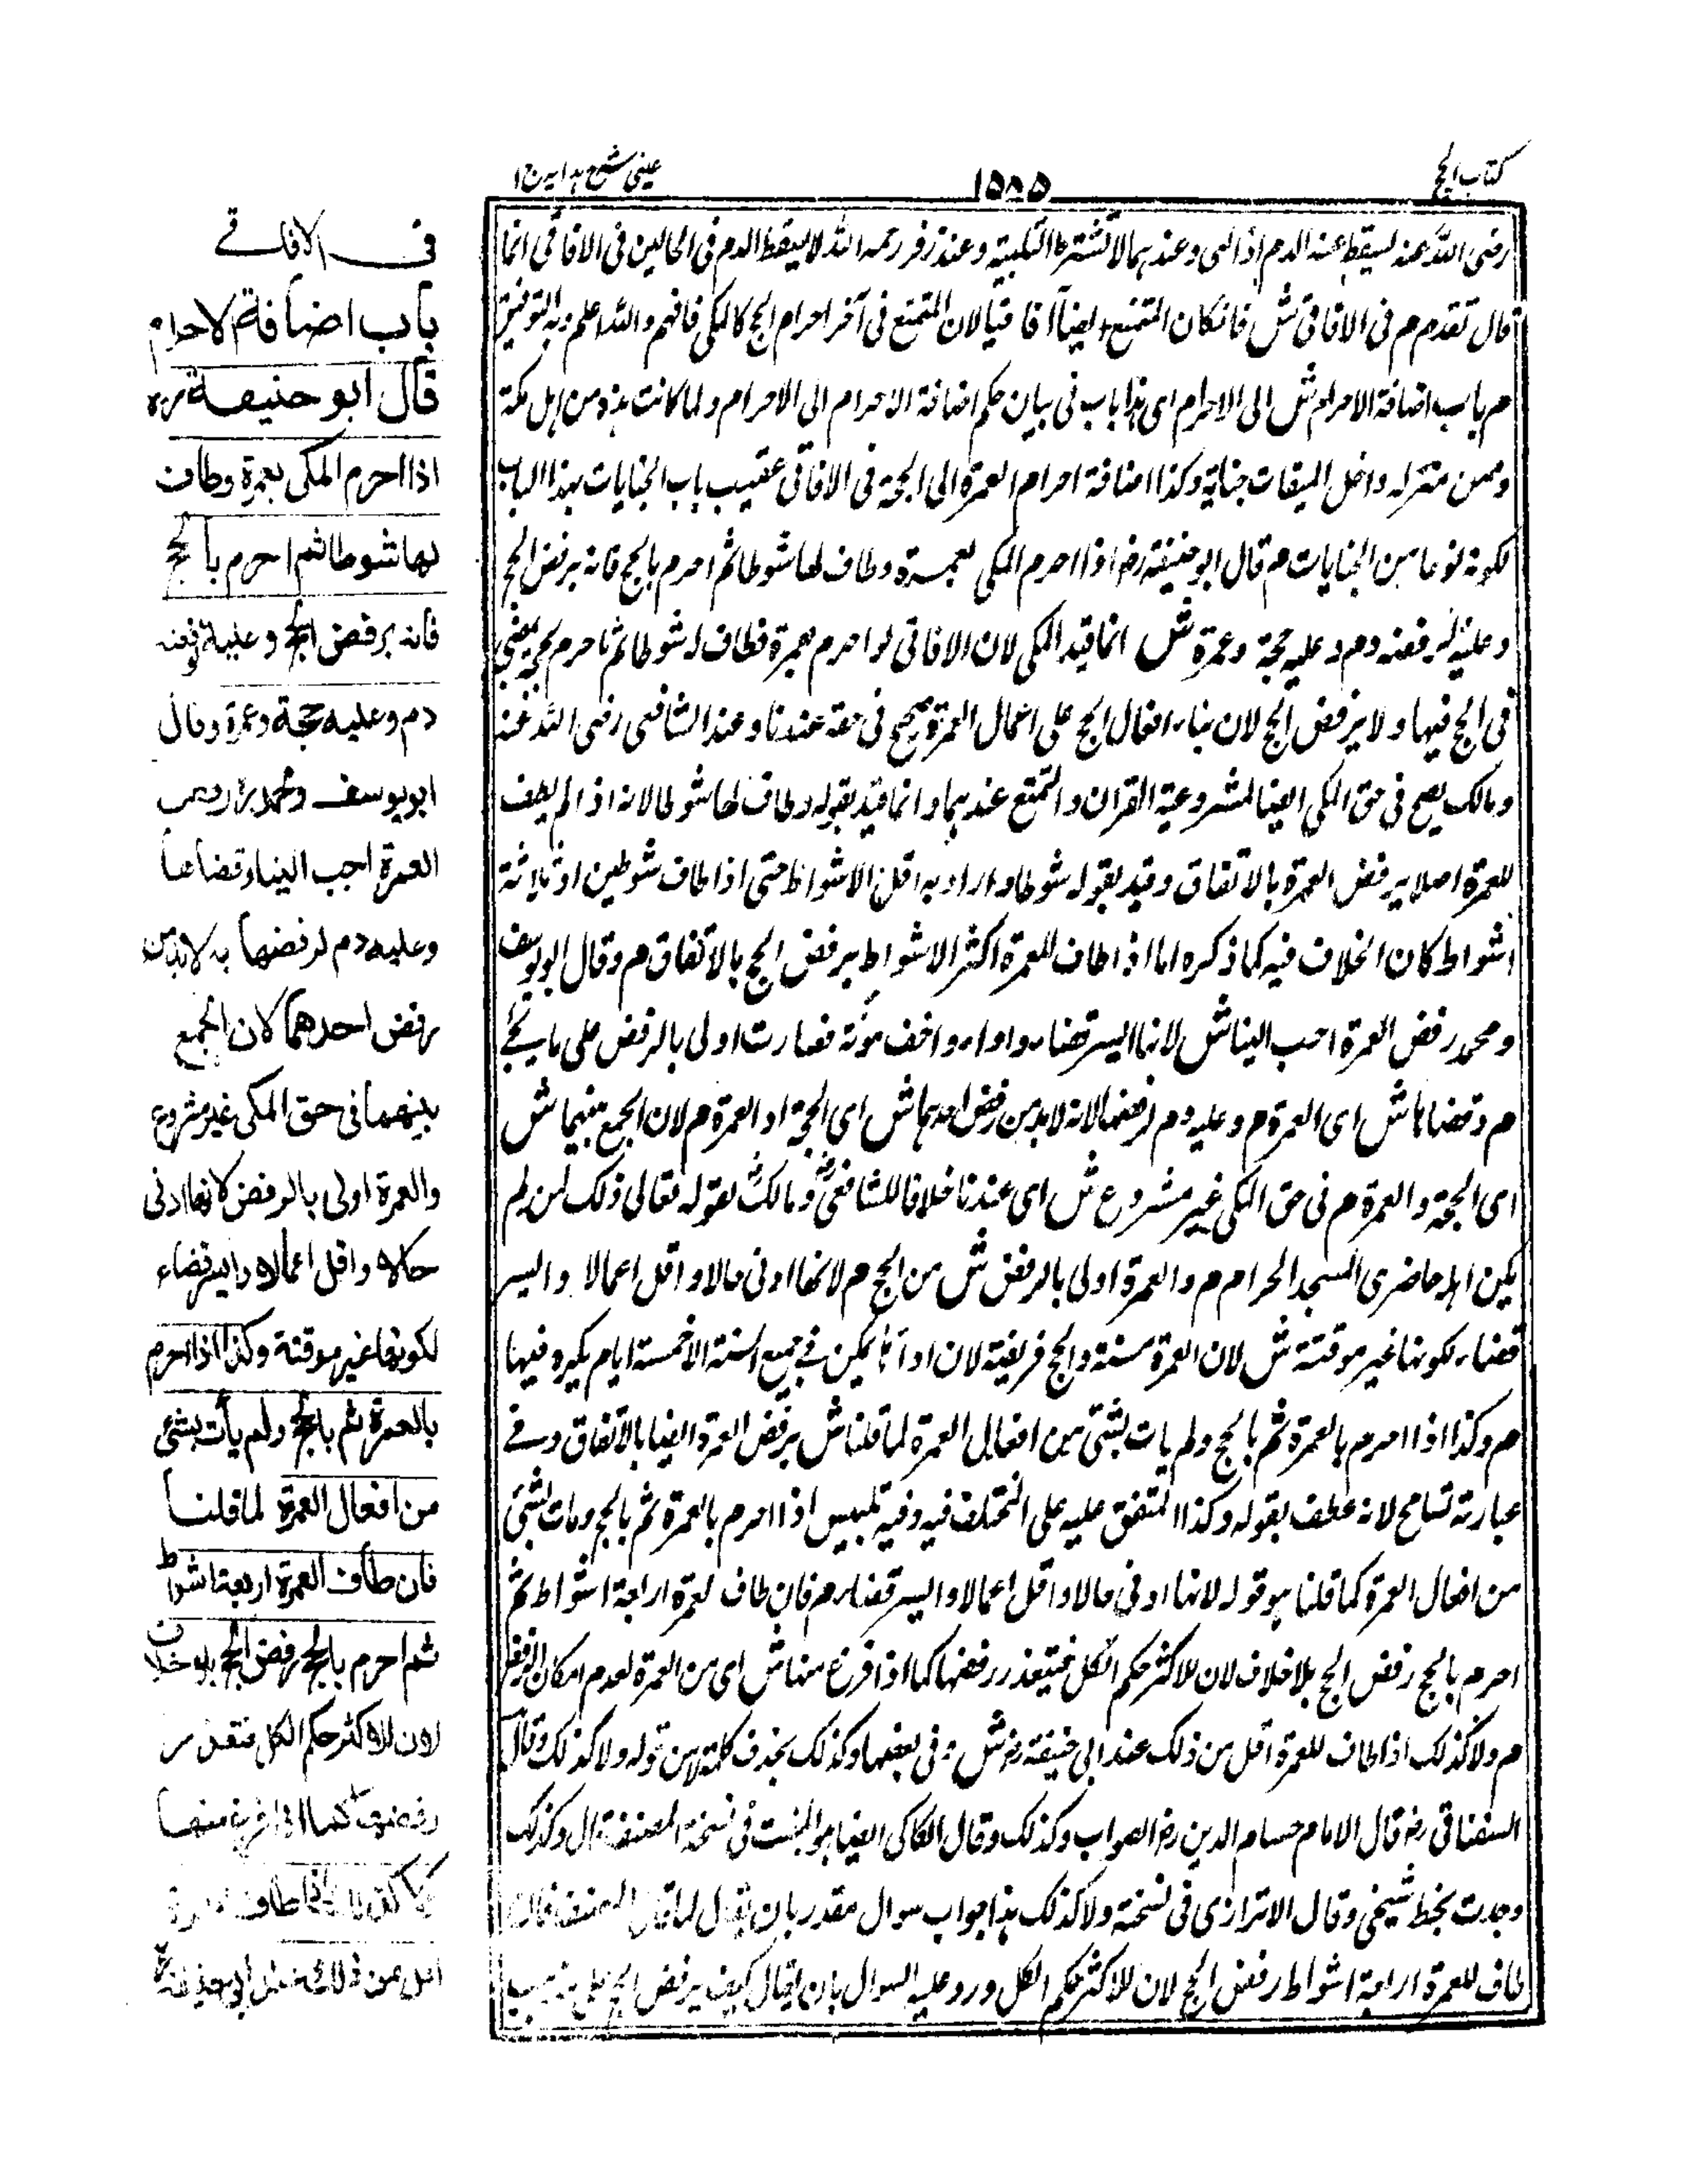 كتاب الحج
١٥٨٥
عينى شرح هدايه ج ١
رضى الله عنه يسقط عنه الدم اذا لبى وعندهما لا تشترط التلبية وعند زفر رحمه الله لا يسقط الدم فى الحالين فى الافاقى انما
قال تقدم م فى الافاقى ش فانكان المتمتع ايضا آفاقيا لان المتمتع فى آخر احرام الحج كالمكى فافهم والله اعلم وبه التوفيق
م باب اضافة الاحرام ش الى الاحرام اى هذا باب فى بيان حكم اضافة الاحرام الى الاحرام ولما كانت هذه من اهل مكة
وممن منزله داخل الميقات جناية وكذا اضافة احرام العمرة الى الحجة فى الافاقى عقيب باب الجنايات بهذا الباب
لكونه نوعا من الجنايات م قال ابو حنيفة رض اذا احرم المكى بعمرة وطاف لها شوطا ثم احرم بالحج فانه يرفض الحج
وعليه لرفضه دم وعليه حجة وعمرة ش انما قيد المكى لان الافاقى لو احرم بعمرة فطاف له شوطا ثم احرم بحجة يمضى
فى الحج فيها ولا يرفض الحج لان بناء افعال الحج على اعمال العمرة صحيح فى حقه عندنا وعند الشافعى رضى الله عنه
ومالك يصح فى حق المكى ايضا لمشروعية القران والتمتع عندهما وانما قيد بقوله وطاف لها شوطا لانه اذا لم يطف
للعمرة اصلا يرفض العمرة بالاتفاق وقيد بقوله شوطا واراد به اقل الاشواط حتى اذا طاف شوطين او ثلاثة
اشواط كان الخلاف فيه كما ذكره اما اذا طاف للعمرة اكثر الاشواط يرفض الحج بالاتفاق م وقال ابو يوسف
ومحمد رفض العمرة احب الينا ش لانها ايسر قضاء واداء واخف مؤنة فصارت اولى بالرفض على ما يجئ
م وقضاها ش اى العمرة م وعليه دم لرفضها لانه لابد من رفض احدهما ش اى الحجة او العمرة م لان الجمع بينهما ش
اى الحجة والعمرة م فى حق المكى غير مشروع ش اى عندنا خلافا للشافعى ومالك لقوله تعالى ذلك لمن لم
يكن اهله حاضرى المسجد الحرام م والعمرة اولى بالرفض ش من الحج م لانها ادنى حالا واقل اعمالا وايسر
قضاء لكونها غير موقتة ش لان العمرة سنة والحج فريضة لان اداءها يمكن فى جميع السنة الا خمسة ايام يكره فيها
م وكذا اذا احرم بالعمرة ثم بالحج ولم يات بشئ من افعال العمرة لما قلنا ش يرفض العمرة ايضا بالاتفاق وفى
عبارته تسامح لانه عطف بقوله وكذا المتفق عليه على المختلف فيه وفيه تلبيس اذا احرم بالعمرة ثم بالحج ومات بشئ
من افعال العمرة كما قلنا هو قوله لانها ادنى حالا واقل اعمالا وايسر قضاء م فان طاف لعمرة اربعة اشواط ثم
احرم بالحج رفض الحج بلا خلاف لان للاكثر حكم الكل فيتعذر رفضها كما اذا فرغ منها ش اى من العمرة لعدم امكان الرفض
م ولا كذلك اذا طاف للعمرة اقل من ذلك عند ابى حنيفة رض ش فى بعضها وكذلك بحذف كلمة لا من قوله ولا كذلك وقال
السغناقى رض قال الامام حسام الدين رض الصواب وكذلك وقال الكاكى ايضا هو المثبت فى نسخة المصنف قال وكذلك
وجدت بخط شيخى وقال الاترازى فى نسخته ولا كذلك هذا جواب سوال مقدر بان يقال لما قال المصنف فان
طاف للعمرة اربعة اشواط رفض الحج لان للاكثر حكم الكل ورد عليه السوال بان يقال كيف يرفض الحج على مذهب
فى الافاقے
باب اضافة الاحرام
قال ابو حنيفة رح
اذا احرم المكى بعمرة وطاف
لها شوطا ثم احرم بالحج
فانه يرفض الحج وعليه لرفضه
دم وعليه حجة وعمرة وقال
ابو يوسف ومحمد رح رفض
العمرة احب الينا وقضاها
وعليه دم لرفضها لانه لابد من
رفض احدهما لان الجمع
بينهما فى حق المكى غير مشروع
والعمرة اولى بالرفض لانها ادنى
حالا واقل اعمالا وايسر قضاء
لكونها غير موقتة وكذا اذا احرم
بالعمرة ثم بالحج ولم يأت بشئ
من افعال العمرة لما قلنا
فان طاف العمرة اربعة اشواط
ثم احرم بالحج رفض الحج بلا خلاف
لان للاكثر حكم الكل فتعذر
رفضها كما اذا فرغ منها
كذلك اذا طاف للعمرة
اقل من ذلك عند ابو حنيفة